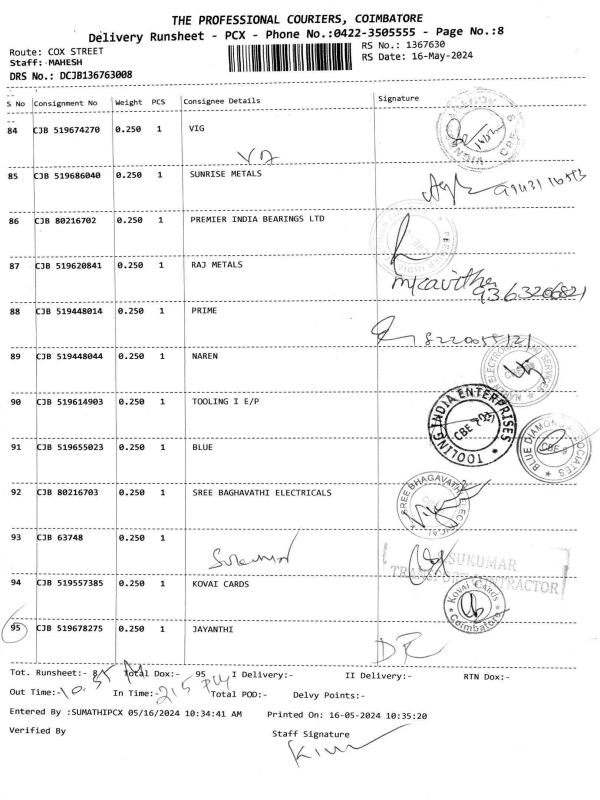 THE PROFESSIONAL COURIERS, COIMBATORE
Delivery Runsheet - PCX - Phone No.:0422-3505555 - Page No.:8
Route: COX STREET RS No.: 1367630
Staff: MAHESH RS Date: 16-May-2024
DRS No.: DCJB136763008
S No Consignment No Weight PCS Consignee Details Signature
84 CJB 519674270 0.250 1 VIG
85 CJB 519686040 0.250 1 SUNRISE METALS
86 CJB 80216702 0.250 1 PREMIER INDIA BEARINGS LTD
87 CJB 519620841 0.250 1 RAJ METALS
mkavitha
9363206821
88 CJB 519448014 0.250 1 PRIME
89 CJB 519448044 0.250 1 NAREN
90 CJB 519614903 0.250 1 TOOLING I E/P
TOOLING INDIA ENTERPRISES
91 CJB 519655023 0.250 1 BLUE
BLUE DIAMOND ASSOCIATES
CBE 9
92 CJB 80216703 0.250 1 SREE BAGHAVATHI ELECTRICALS
SREE BHAGAVATHI ELECTRICAL
93 CJB 63748 0.250 1
Sukumar
SUKUMAR
TRANSPORT CONTRACTOR
94 CJB 519557385 0.250 1 KOVAI CARDS
Kovai Cards
Coimbatore
95 CJB 519678275 0.250 1 JAYANTHI
Tot. Runsheet:- 8 Total Dox:- 95 I Delivery:- II Delivery:- RTN Dox:-
Out Time:- 10.35 AM In Time:- 2.15 PM Total POD:- Delvy Points:-
Entered By :SUMATHIPCX 05/16/2024 10:34:41 AM Printed On: 16-05-2024 10:35:20
Verified By Staff Signature